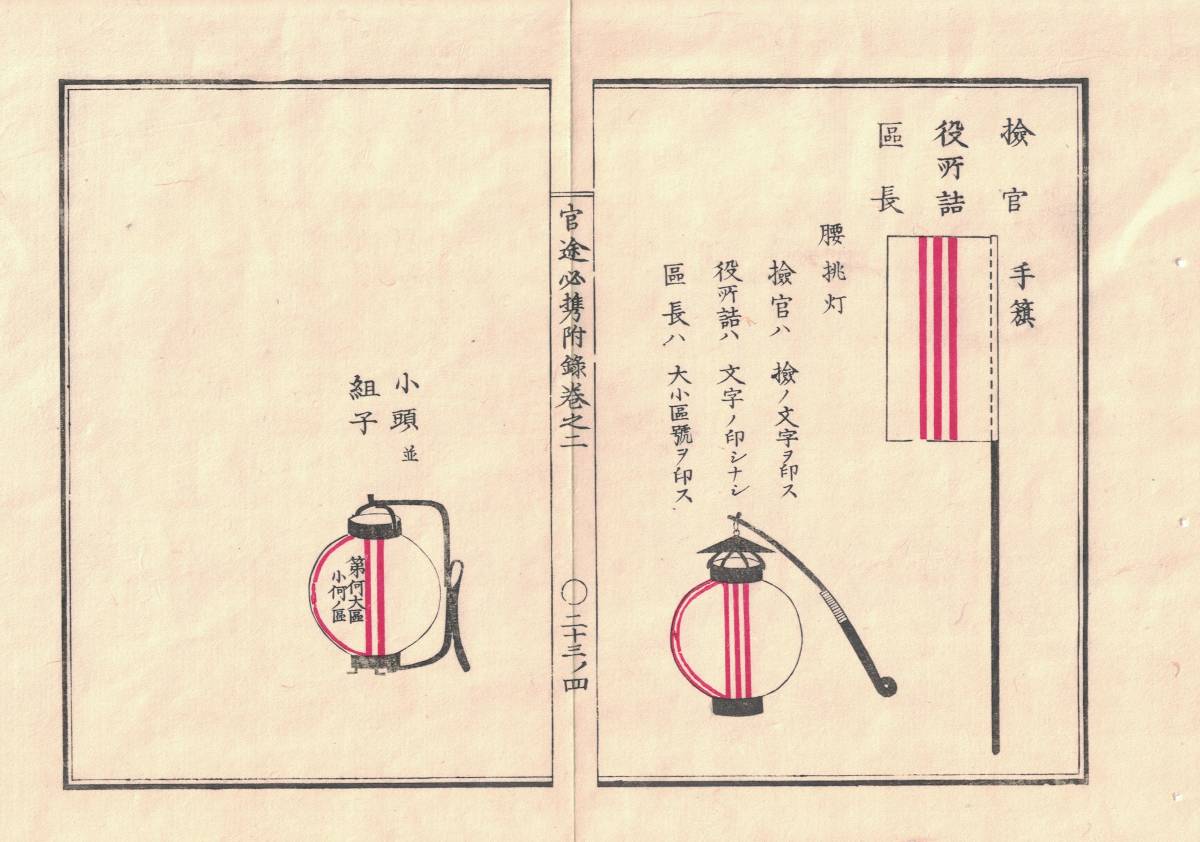 撿官
役所詰
區長
手籏
腰挑灯
撿官ハ 撿ノ文字ヲ印ス
役所詰ハ 文字ノ印シナシ
區長ハ 大小區號ヲ印ス
官途必携附錄卷之二
〇二十三ノ四
小頭並
組子
第何大區
小何ノ區